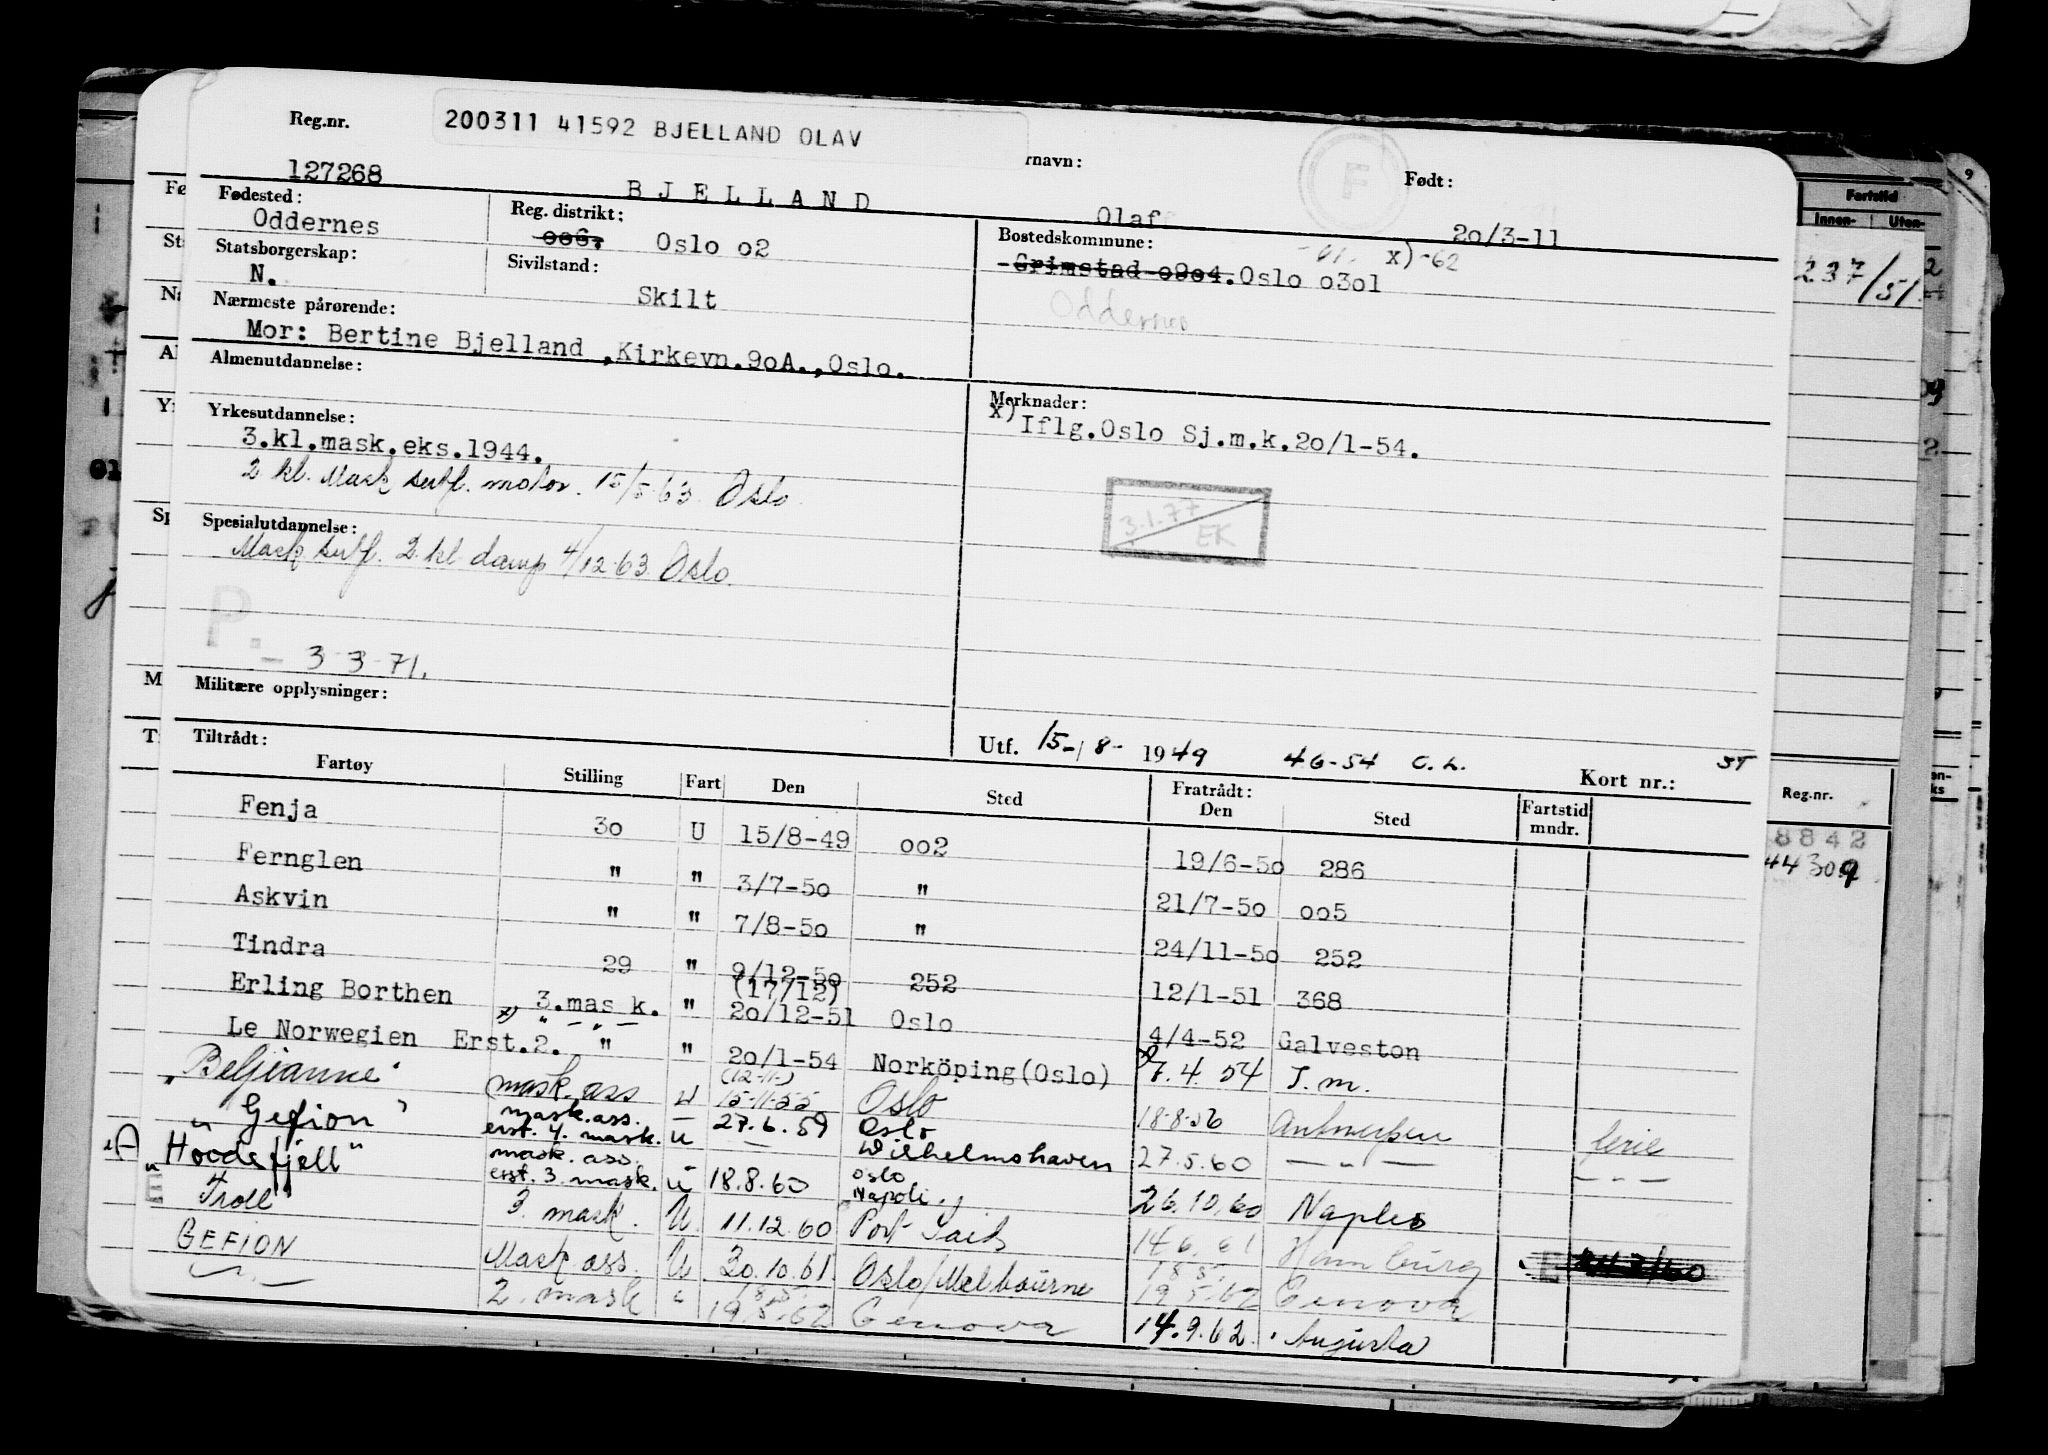 Reg.nr.
200311 41592 BJELLAND OLAV
rnavn:
F
Født:
127268
BJELLAND
Olaf
20/3-11
Fødested:
Oddernes
Reg. distrikt:
006. Oslo o2
Bostedskommune:
-61. x)-62
-Grimstad-o9o4.Oslo o3o1
Oddernes
Statsborgerskap:
N.
Sivilstand:
Skilt
Nærmeste pårørende:
Mor: Bertine Bjelland ,Kirkevn.9oA.,Oslo.
Almenutdannelse:
Merknader:
x) Iflg.Oslo Sj.m.k.2o/1-54.
Yrkesutdannelse:
3.kl.mask.eks.1944.
2 kl. Mask sertf. motor. 15/5-63 Oslo
3.1.77
EK
Spesialutdannelse:
Mask sertf. 2 kl damp 4/12-63 Oslo.
P.
- 3 3-71.
Militære opplysninger:
Utf. 15-/8- 1949 46-54 O.L. ST
Kort nr.:
Tiltrådt:
Fartøy Stilling Fart Den Sted Fratrådt: Den Sted Fartstid mndr.
Fenja 3o U 15/8-49 oo2 19/6-5o 286
Fernglen " " 3/7-5o " 21/7-5o oo5
Askvin " " 7/8-5o " 24/11-5o 252
Tindra 29 " 9/12-5o (17/12) 252 12/1-51 368
Erling Borthen 3.mask. " 2o/12-51 Oslo 4/4-52 Galveston
Le Norwegien Erst.2. x) " - " - " 2o/1-54 Norköping(Oslo) 7.4.54 I.m.
"Beljeanne" mask.ass u (12-11-) 15-11-55 Oslo 18-8-56 Antwerpen ferie
"Gefion" mask.ass. erst. 4. mask. u 27.6.59 Oslo Wilhelmshaven 27.5.60 - " - - - -
"Höodefjell" mask.ass. erst. 3. mask. u 18.8.60 oslo Napoli 26.10.60 Naples
"Troll" 3. mask. U. 11.12.60 Port Said 14.6.61 Hamburg
GEFION Mask ass. U 30.10.61 Oslo/Melbourne 18.5. 19.5.62 Genova
2. mask " 18.5. 19.5.62 Genova 14.9.62. Augusta
Fartstid
Innen- Uten-
237/51
Reg.nr.
8842
44309